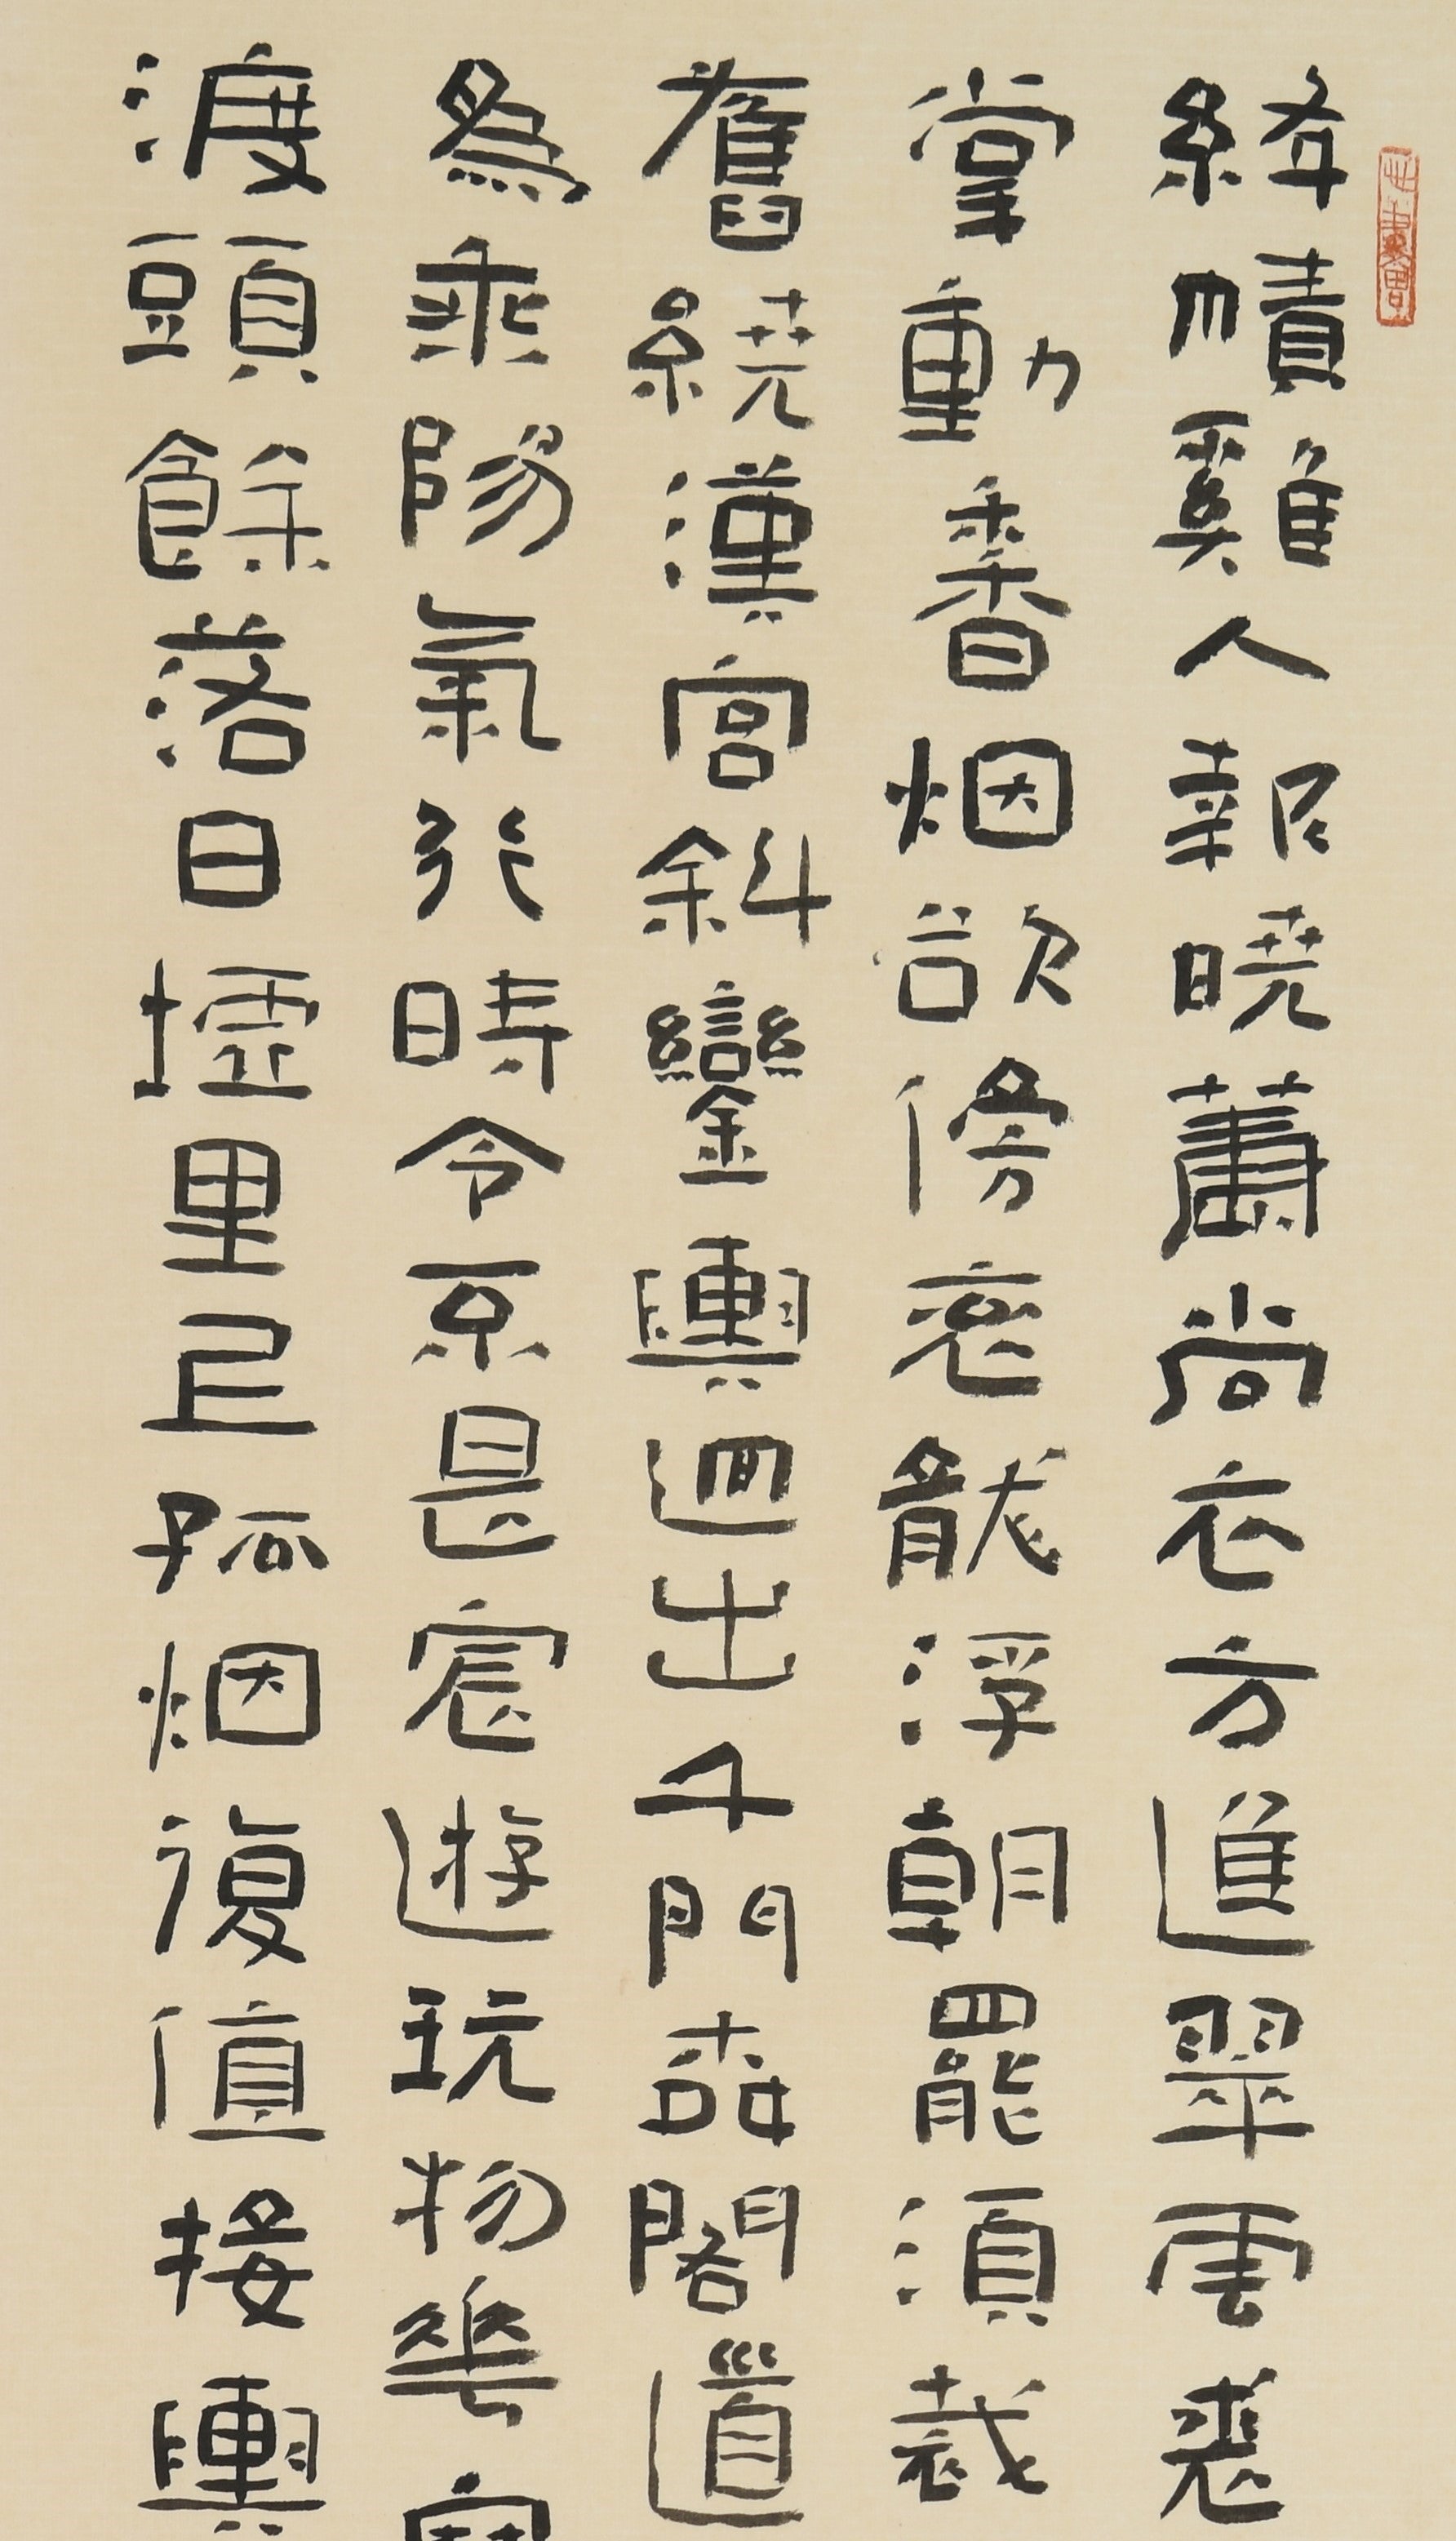 絳幘雞人報曉籌尚衣方進翠雲裘
掌動香烟欲傍袞龍浮朝罷須裁
舊繞漢宮斜鑾輿迥出千門柳閣道
為乘陽氣行時令不是宸遊玩物華
渡頭餘落日墟里上孤烟復值接輿